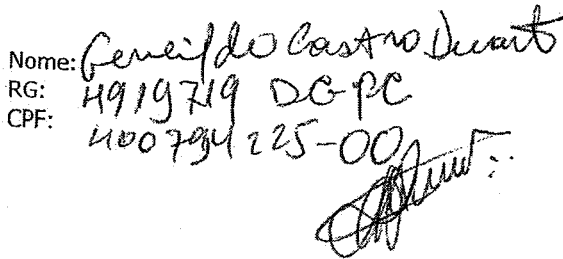 Nome: Geneildo Castro Duarte
RG: 4919719 DGPC
CPF: 400794225-00